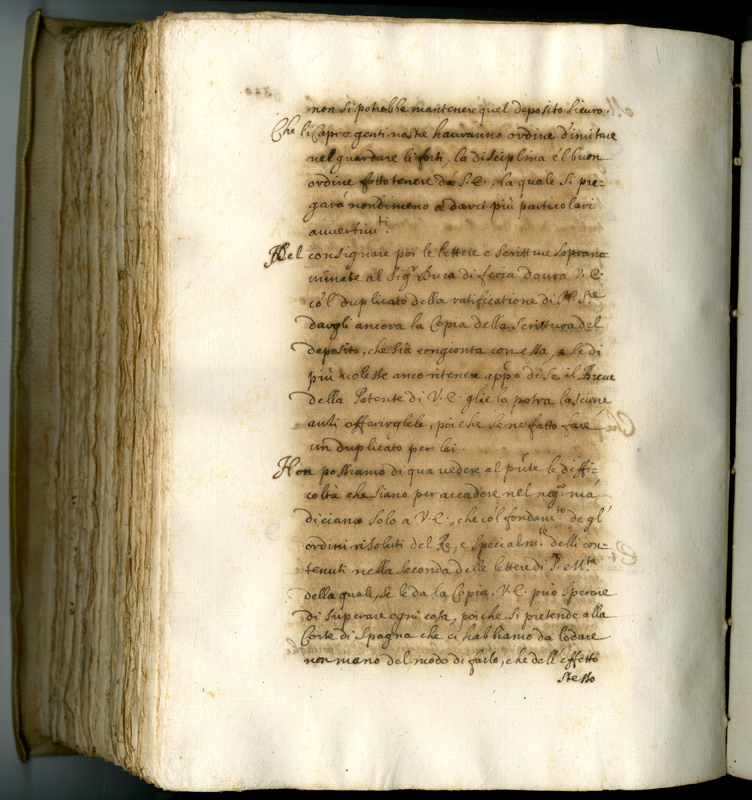 non si potrebbe mantenere quel deposito sicuro.
Che li Capi e genti nostre hauranno ordine d'imitare
nel guardare li forti, la disciplina e'l buon
ordine fatto tenere da S.E., la quale si pre=
garà nondimeno a darci più particolari
auuertim.ti
Nel consignare poi le lettere e scritture soprano=
minate al Sig.r Duca di feria dourà V.E.
co'l duplicato della ratificatione di
dargli ancora la Copia della Scrittura del
deposito, che stà congionta con essa, e se di
più uolesse anco ritenere app.o di se il Breue
della Patente di V.E. glie lo potrà lasciare
anzi offerirglele, poiche se ne fatto fare
un duplicato per lei.
Non possiamo di qua uedere al p'nte le diffi=
coltà che siano per accadere nel neg.o mà
diciamo solo a V.E., che co'l fondam.to de gl'
ordini risoluti del Rè, e specialm.te delli con=
tenuti nella seconda delle lettere di S. M.tà
della quale, se le dà la Copia. V.E. può sperare
di superare ogni cosa, poiche si pretende alla
Corte di Spagna che ci habbiamo da lodare
non mano del modo di farlo, che dell'effetto
stesso